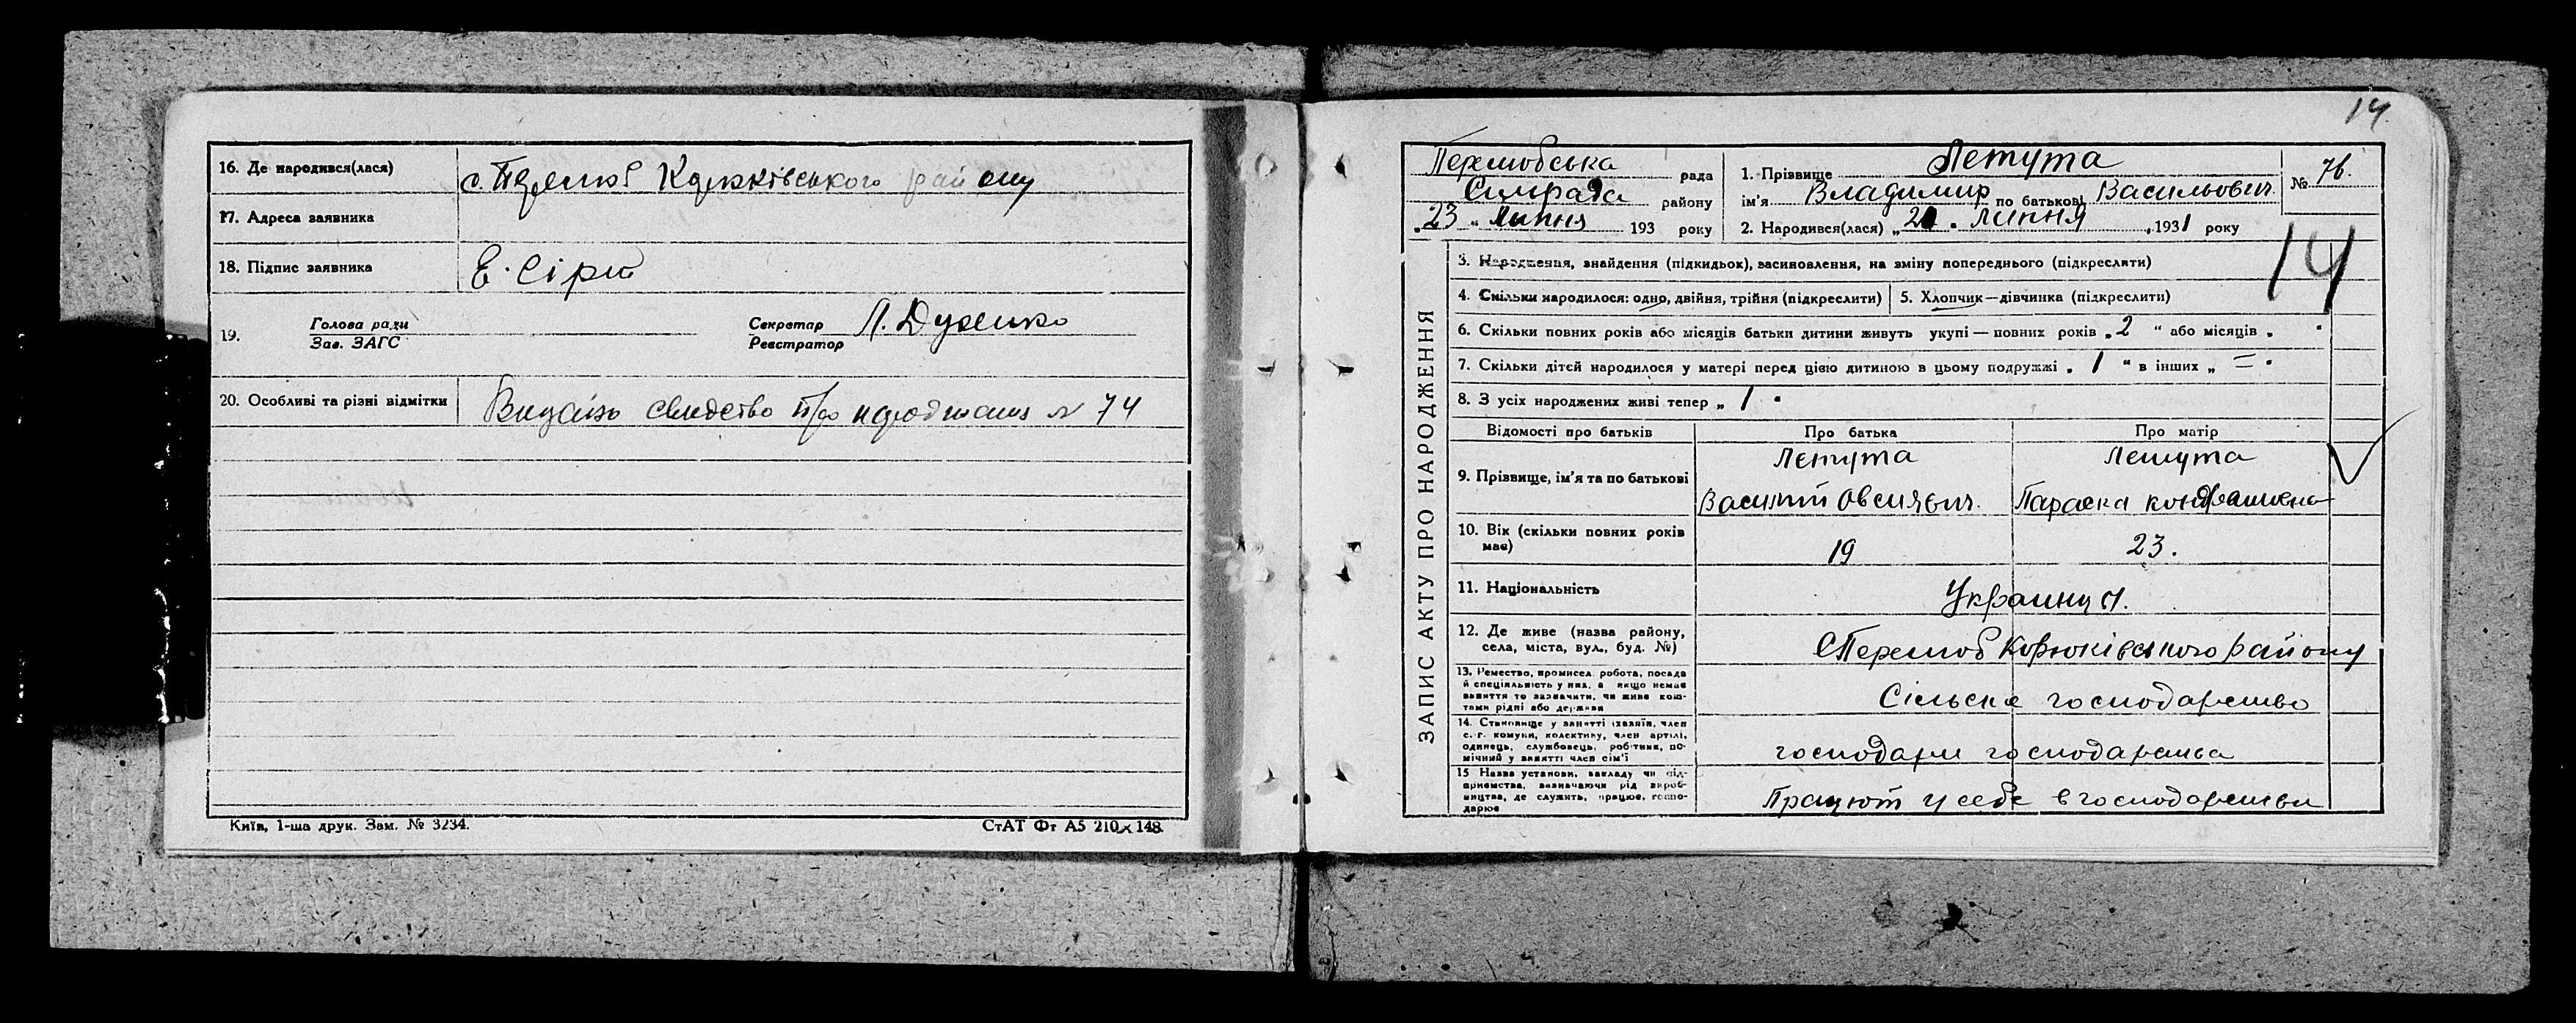 16. Де народився(лася)
17. Адреса заявника
18. Підпис заявника Е. Сіри
19. Голова ради
Зав. ЗАГС
Секретар Л. Дуденко
Реєстратор
20. Особливі та різні відмітки свидєтво про № 74
Київ, 1-ша друк. Зам. № 3234. СтАТ Фт А5 210×148.
14.
Перелюбська рада
Сільрада району
„23„ Липня 193 року
1. Прізвище Летута
ім'я Владимир по батькові Васильович.
2. Народився(лася) „ липня „ 1931 року
№ 76.
14
ЗАПИС АКТУ ПРО НАРОДЖЕННЯ
3. Народження, знайдення (підкидьок), васиновлення, на зміну попереднього (підкреслити)
4. Скільки народилося: одно, двійня, трійня (підкреслити) 5. Хлопчик—дівчинка (підкреслити)
6. Скільки повних років або місяців батьки дитини живуть укупі — повних років „ 2 “ або місяців „
7. Скільки дітей народилося у матері перед цією дитиною в цьому подружжі „ 1 “ в інших „ =
8. З усіх народжених живі тепер „ 1
Відомості про батьків Про батька Про матір
9. Прізвище, ім'я та по батькові
Летута Летута
Василій Овсиявич. Параска
10. Вік (скільки повних років має) 19 23.
11. Національність Украинці.
12. Де живе (назва району,
села, міста, вул., буд. №)
с Перелюб Корюківського району
13. Ремество, промисел, робота, посада
й спеціяльність у них, а якщо немає
заняття то зазначити, чи живе кош-
тами рідні або держави
Сільске господарство
14. Становище у занятті (хазяїн, член
с.-г. комуни, колективу, член артілі,
одинець, службовець, робітник, по-
мічний у занятті член сім'ї
господари господарства
15 Назва установи, закладу чи під-
приємства, визначаючи рід вироб-
ництва, де служить, працює, госпо-
дарює
Працюют у себе в господарстви